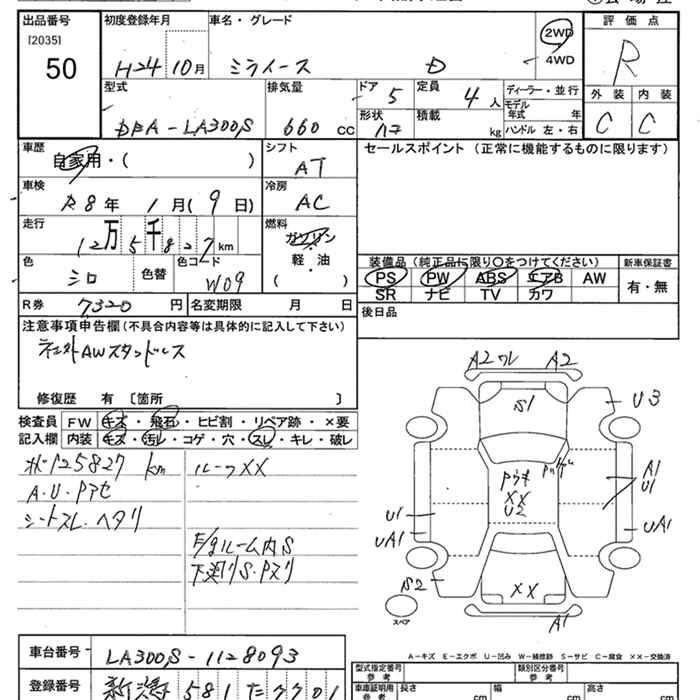 出品番号
[2035]
50
初度登録年月
H24 10月
車名・グレード
ミライース D
2WD
4WD
評価点
R
外装 内装
C C
型式
DBA-LA300S
排気量
660 cc
ドア 5
形状
定員 4人
積載 kg
ディーラー・並行
モデル年式 年
ハンドル 左・右
車歴
自家用・( )
シフト
AT
セールスポイント (正常に機能するものに限ります)
車検
R8年 1月(9日)
冷房
AC
走行
12万5千827km
燃料
ガソリン
軽・油
( )
色
シロ
色替
色コード
W09
装備品 (純正品に限り○をつけてください)
PS PW ABS エアB AW
SR ナビ TV カワ
新車保証書
有・無
R券 7320 円
名変期限 月 日
後日品
注意事項申告欄 (不具合内容等は具体的に記入して下さい)
AWスタッドレス
修復歴 有 [箇所 ]
検査員記入欄
FW キズ・飛石・ヒビ割・リペア跡・×要
内装 キズ・汚レ・コゲ・穴・スレ・キレ・破レ
125827 km
ルーフXX
A.U.Pアセ
シートスレ.ヘタリ
ルーム内S
下廻りS.Pスリ
A2ワレ A2
S1
U3
XX
U2
A1
U1
U1
UA1
UA1
S2
XX
A1
スペア
A-キズ E-エクボ U-凹み W-補修跡 S-サビ C-腐食 XX-交換済
車台番号
LA300S-1128093
登録番号
新潟 581 た 7701
型式指定番号
参考
類別区分番号
参考
車庫証明用
参考
長さ cm
幅 cm
高さ cm